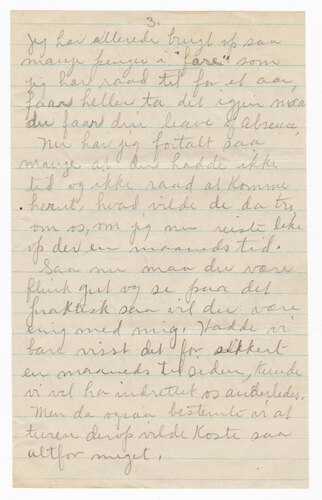 3.
Jeg har allerede brugt op saa
mange penger i "fare" som
jeg har raad til for et aar,
faar heller ta det igjen naar
du faar din leave of Absence,
Nu har jeg fortalt saa
mange at du hadde ikke
tid og ikke raad at komme
herut, hvad vilde de da tro
om os, om jeg nu reiste like
op der en maaneds tid.
Saa nu maa du være
flink gut og se paa det
praktisk saa vil du være
enig med mig. Hadde vi
bare visst det for sikkert
en maaneds tid siden, kunde
vi vil ha indrettet os anderledes.
Men da ogsaa bestemte vi at
turen derop vilde koste saa
altfor meget.